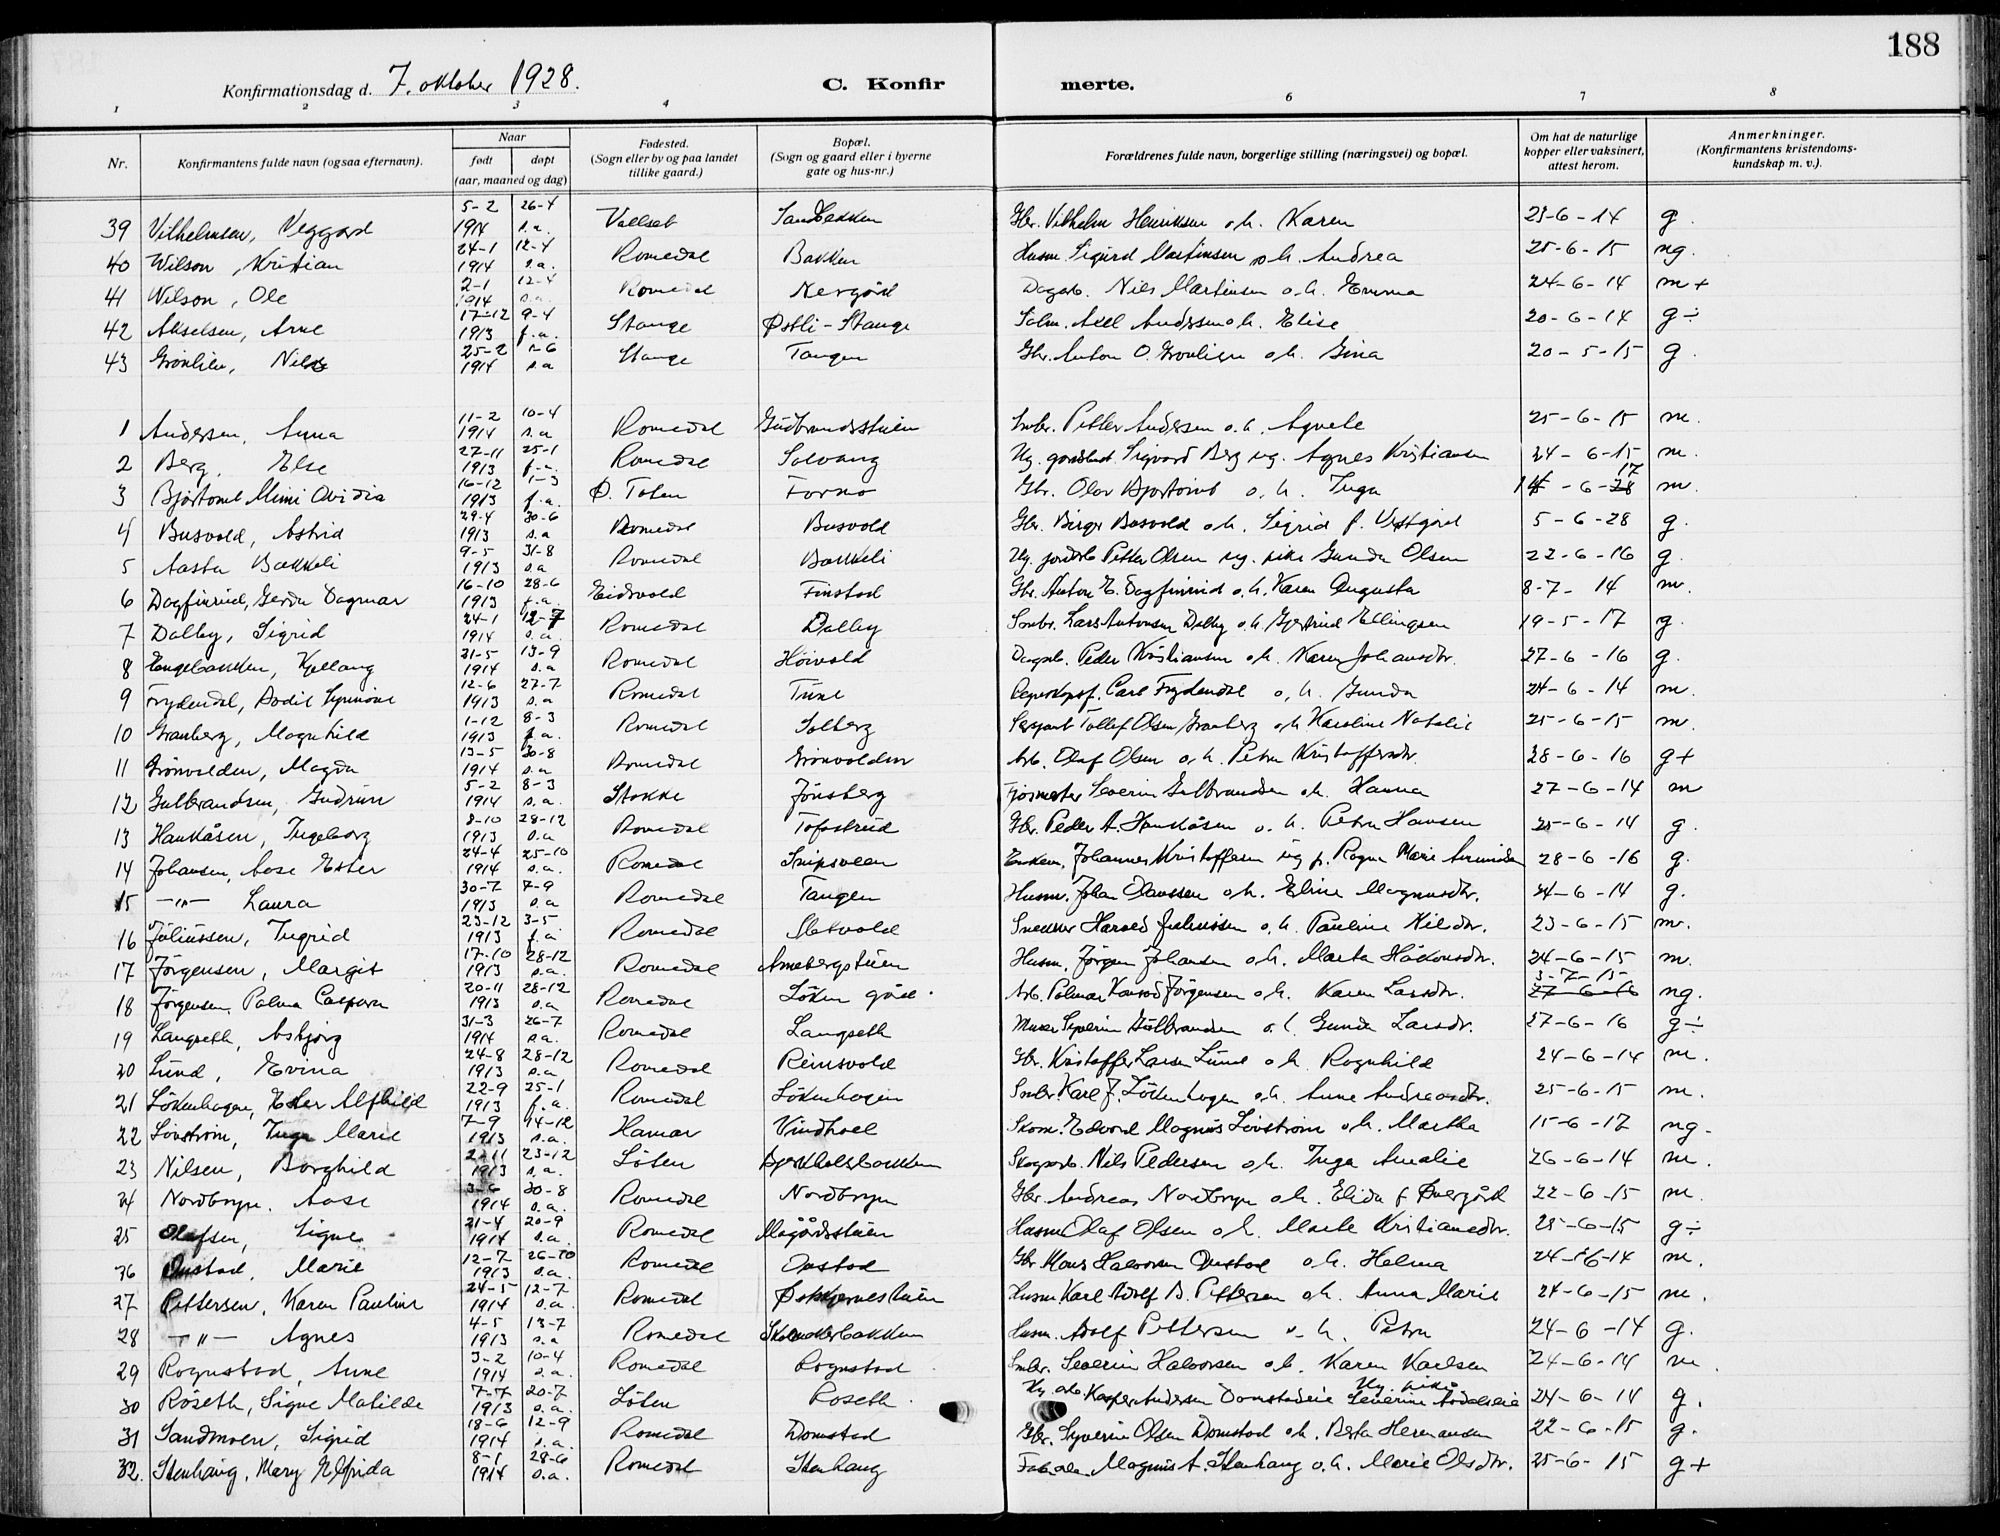 188
Konfirmationsdag d. 7. oktober 1928. C. Konfir merte.
1 2 3 4 6 7 8
Nr. Konfirmantens fulde navn (ogsaa efternavn). Naar født døpt (aar, maaned og dag) Fødested. (Sogn eller by og paa landet tillike gaard.) Bopæl. (Sogn og gaard eller i byerne gate og hus-nr.) Forældrenes fulde navn, borgerlige stilling (næringsvei) og bopæl. Om hat de naturlige kopper eller vaksinert, attest herom. Anmerkninger. (Konfirmantens kristendoms-kundskap m. v.).
39 Vilhelmsen, Veggard 5-2 1914 26-4 s.a. Vallset Sandbakken Gbr. Vilhelm Henriksen o.h. Karen 23-6-14 g.
40 Wilson, Kristian 24-1 1914 12-4 s.a. Romedal Bakken Husm. Sigurd Martinsen o.h. Andrea 25-6-15 ng.
41 Nilson, Ole 2-1 1914 12-4 s.a. Romedal Nergård Dagarb. Nils Martinsen o.h. Emma 24-6-14 m+
42 Akselsen, Arne 17-12 1913 9-4 f.a. Stange Østli-Stange Axel Andersen o.h. Elise 20-6-14 g÷
43 Grønlien, Nils 25-2 1914 1-6 s.a Stange Tangen Gbr. Anton O. Grønlien o.h. Gina 20-5-15 g.
1 Andersen, Anna 11-2 1914 10-4 s.a Romedal Gudbrandsstuen Smbr. Petter Andersen o.h. Agnete 25-6-15 m.
2 Berg, Else 27-11 1913 25-1 f.a. Romedal Solvang Ug. Sigvard Berg ug. Agnes Kristiansen 24-6-15 m.
3 Bjørtomt Mimi Ovidia 16-12 1913 1-3 f.a. Ø. Toten Forno Gbr. Olov Bjørtomt o.h. Inga 14-6-17 m.
4 Busvold, Astrid 29-4 1913 30-6 s.a Romedal Busvold Gbr. Birger Busvold o.h. Sigrid f. Vestgård 5-6-28 g.
5 Aasta Bakkeli 9-5 1913 31-8 s.a Romedal Bakkeli Ug. jordarb. Petter Olsen ug. pike Gunda Olsen 22-6-16 g.
6 Dagfinrud, Gerda Dagmar 16-10 1913 28-6 f.a. Eidsvold Finstad Gbr. Anton E. Dagfinrud o.h. Karen Augusta 8-7-14 m.
7 Dalby, Sigrid 24-1 1914 12-7 s.a. Romedal Dalby Smbr. Lars Antonsen Dalby o.h. Gjertrud Ellingsen 19-5-17 g.
8 Engebakken, Kjellaug 21-5 1914 13-9 s.a Romedal Høivold Dagarb. Peder Kristiansen o.h. Karen Johansdtr. 27-6-16 g.
9 Frydendal, Bodil Synnøve 12-6 1913 27-7 s.a Romedal Tune Carl Frydendal o.h. Gunda 24-6-14 m.
10 Granberg, Magnhild 1-12 1913 8-3 f.a. Romedal Solberg Sersjant Tollef Olsen Granberg o.h. Karoline Natalie 25-6-15 m.
11 Grønvolden, Magda 13-5 1914 30-8 s.a Romedal Grønvolden Arb. Olaf Olsen o.h. Petra Kristoffersdtr. 28-6-16 g+
12 Gulbrandsen, Gudrun 5-2 1914 8-3 s.a. Stokke Jønsberg Fjøsmester Severin Gulbrandsen o.h. Hanna 27-6-14 m
13 Haukåsen, Ingeborg 8-10 1913 28-12 s.a Romedal Tofastrud Gbr. Peder A. Haukåsen o.h. Petra Hansen 25-6-14 g.
14 Johansen, Aase Ester 24-4 1914 25-10 s.a. Romedal Snipsveen Enkem. Johannes Kristoffersen ug p. Ragna Marie Amundsen 28-6-16 g.
15 -"- Laura 30-7 1913 7-9 s.a Romedal Tangen Husm. Johan Olaussen o.h. Eline Magnusdtr. 24-6-14 g.
16 Juliussen, Ingrid 23-12 1913 3-5 f.a Romedal Åkevold Snekker Harald Juliussen o.h. Pauline Nilsdtr. 23-6-15 m.
17 Jørgensen, Margit 17-10 1913 28-12 s.a. Romedal Arnebergstuen Husm. Jørgen Johansen o.h. Marta Håkonsdtr. 24-6-15 m.
18 Jørgensen, Palma Caspara 20-11 1913 28-12 s.a Romedal Løken gård. Arb. Palmar Konrad Jørgensen o.h. Karen Larsdtr. 3-7-15 27-6-16 ng.
19 Langseth, Asbjørg 31-3 1914 26-7 s.a. Romedal Langseth Murer Syverin Gulbrandsen o.h. Gunda Larsdtr. 27-6-16 g÷
20 Lund, Evina 24-8 1913 28-12 s.a Romedal Reinsvold Gbr. Kristoffer Larsen Lund o.h. Ragnhild 24-6-14 m.
21 Løkenhagen, Ester Alfhild 22-9 1913 25-1 f.a. Romedal Løkenhagen Smbr. Karl J. Løkenhagen o.h. Anne Andreasdtr. 25-6-15 m.
22 Løvstrøm, Inga Marie 7-9 1913 14-12 s.a. Hamar Vindhoel Skom. Edvard Magnus Løvstrøm o.h. Martha 15-6-17 ng.
23 Nilsen, Borghild 2-11 1913 23-12 s.a. Løten Bjerkholsbakken Skogsarb. Nils Pedersen o.h. Inga Amalie 26-6-14 m.
24 Nordbryn, Aase 3-6 1914 30-8 s.a. Romedal Nordbryn Gbr. Andreas Nordbryn o.h. Elida f. Svergård 22-6-15 m.
25 Olafsen, Signe 21-4 1914 20-9 s.a. Romedal Magårdsstuen Husm. Olaf Olsen o.h. Marte Kristiansdtr. 25-6-15 g÷
26 Onstad, Marie 12-7 1913 26-10 s.a. Romedal Onstad Gbr. Hans Halvorsen Onstad o.h. Helma 24-6-14 m.
27 Pettersen, Karen Pauline 24-5 1914 12-7 s.a. Romedal Østkjernestuen Husm. Karl Adolf B. Pettersen o.h. Anna Marie 24-6-15 m.
28 -"- Agnes 4-5 1913 13-7 s.a Romedal Skomakerbakken Husm. Adolf Pettersen o.h. Petra 24-6-14 g.
29 Rognstad, Anne 3-2 1914 10-4 s.a. Romedal Rognstad. Smbr. Severin Halvorsen o.h. Karen Karlsen 24-6-14 m.
30 Røseth, Signe Matilde 7-7 1913 20-7 s.a. Løten Roseth. Ug. arb. Kasper Andersen Domstadeie Ug. pike Severine 24-6-14 g.
31 Sandmoen, Sigrid 18-6 1914 12-9 s.a. Romedal Domstad Gbr. Syverin Olsen Domstad o.h. Berta Hermansen 22-6-15 g.
32. Stenhaug, Mary Elfrida 8-1 1914 28-6 s.a. Romedal Stenhaug Magnus A. Stenhaug o.h. Marie Olsdtr. 25-6-15 g+